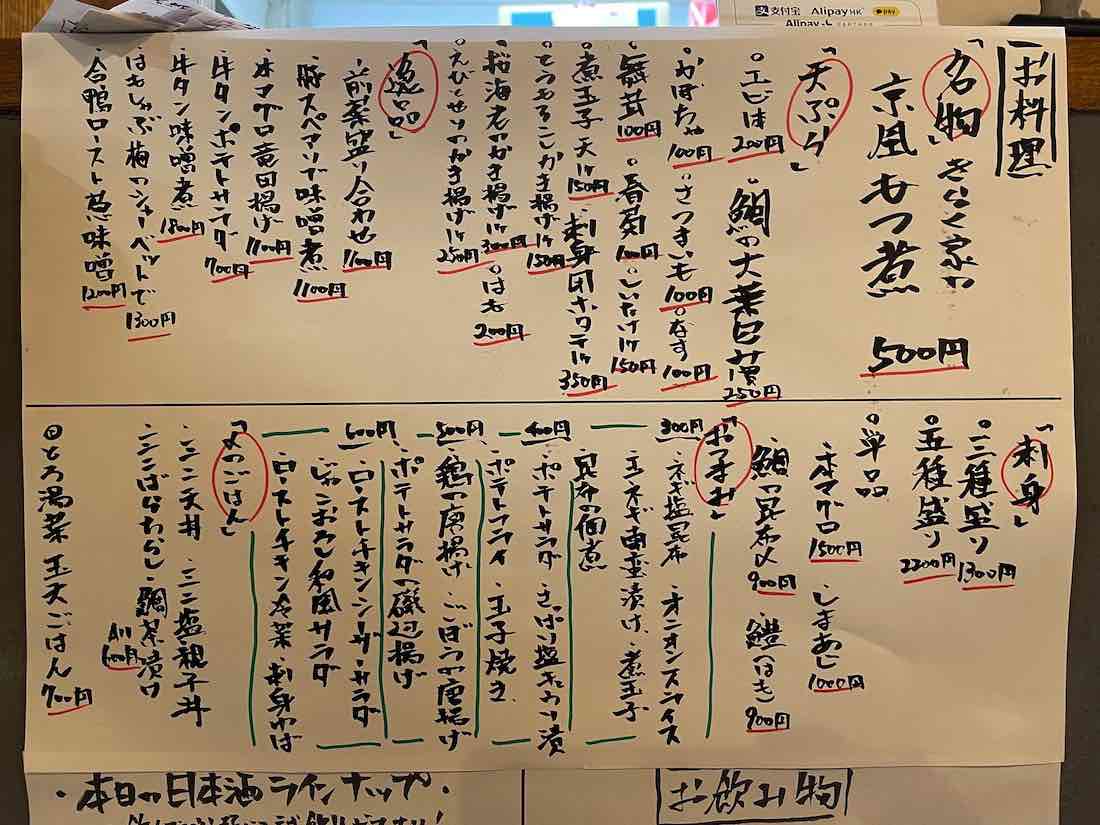 支付宝 AlipayHK pay
Alipay+ PARTNER
お料理
「名物」きらく家の
京風もつ煮 500円
「天ぷら」
。エビ1本 200円 ・鯛の大葉包み1貫 250円
・かぼちゃ 100円 ・さつまいも 100円 ・なす 100円
・舞茸 100円 ・春菊 100円 ・しいたけ1ヶ 150円
・煮玉子天1ヶ 150円 ・刺身用ホタテ1ヶ 350円
・とうもろこしかき揚げ1ヶ 150円
・桜海老のかき揚げ1ヶ 300円 ・はも 200円
・えびとせりのかき揚げ1ヶ 250円
「逸品」
・前菜盛り合わせ 1100円
・豚スペアリブ味噌煮 1100円
・本マグロ竜田揚げ 1100円
・牛タンポテトサラダ 700円
・牛タン味噌煮 1800円
・はもしゃぶ梅のシャーベットで 1300円
・合鴨ロースト葱味噌 1200円
「刺身」
。三種盛り 1300円
。五種盛り 2200円
。単品
・本マグロ 1500円 ・しまあじ 1000円
・鯛の昆布〆 900円 ・鱧(はも) 900円
「おつまみ」
300円
・ネギ塩昆布 ・オニオンスライス
・玉ネギ南蛮漬け、煮玉子
昆布の佃煮
400円
・ポテトサラダ ・さっぱり塩きゅうり漬
・ポテトフライ ・玉子焼き
500円
・鶏の唐揚げ ・ごぼうの唐揚げ
・ポテトサラダの磯辺揚げ
600円
・ローストチキンシーザーサラダ
・じゃこおろし和風サラダ
・ローストチキン冷菜・刺身ゆば
「〆のごはん」
・ミニ天丼 ・ミニ塩親子丼
・ミニばらちらし・鯛茶漬け
All 600円
◎とろ湯葉 玉天ごはん 700円
・本日の日本酒ラインナップ・
お飲み物